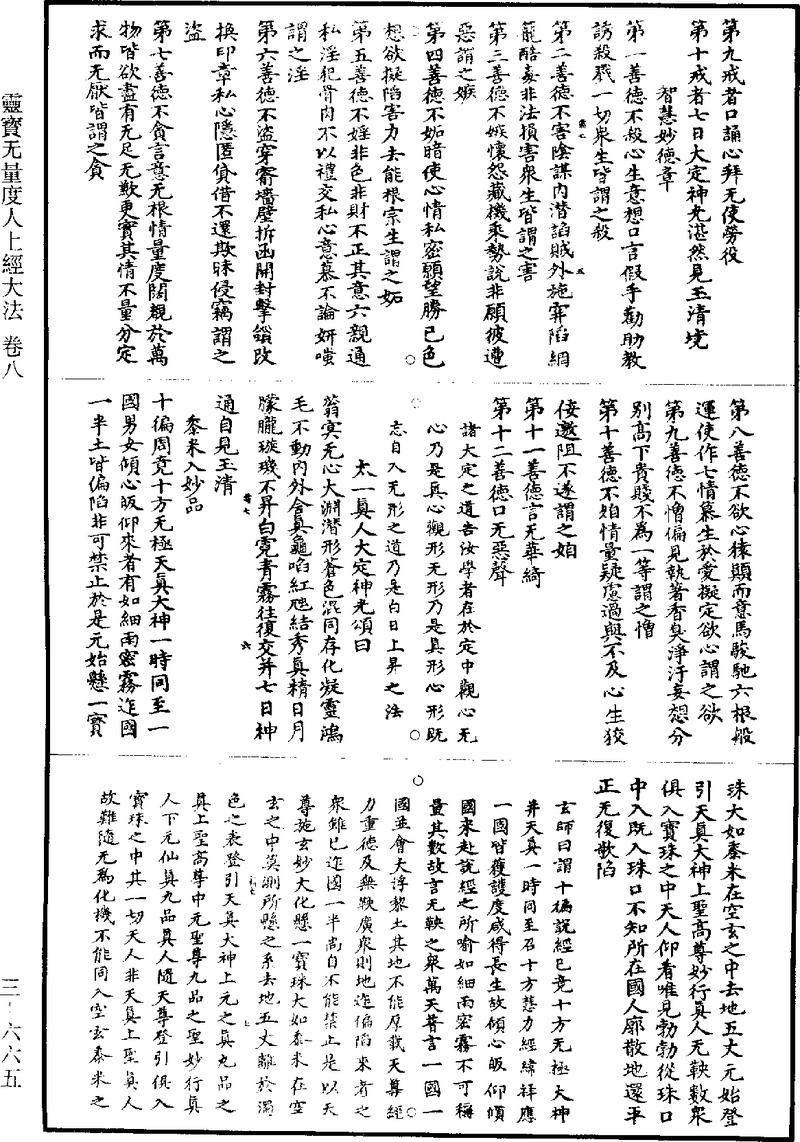 靈寶无量度人上經大法 卷八
三-六六五
第九戒者口誦心拜无使勞役
第十戒者七日大定神光湛然見玉清境
智慧妙德章
第一善德不殺心生意想口言假手勸助教
誘殺戮一切衆生皆謂之殺
第二善德不害陰謀內潛謟賊外施穽陷網
籠酷毒非法損害衆生皆謂之害
第三善德不嫉懷怨藏機乘勢說非願彼遭
惡謂之嫉
第四善德不妬暗使心情私密願望勝已色
想欲擬陷害力去能根宗生謂之妬
第五善德不婬非色非財不正其意六親通
私淫犯骨肉不以禮交私心意慕不論妍嗤
謂之淫
第六善德不盜穿窬墻壁折函開封擊鎖改
換印章私心隱匿貸借不還欺昧侵竊謂之
盜
第七善德不貪言意无根情量度闊親於萬
物皆欲盡有无足无歉更實其情不量分定
求而无厭皆謂之貪
第八善德不欲心猿顛而意馬駿馳六根般
運使作七情纂生於愛擬定欲心謂之欲
第九善德不憎偏見執著香臭淨汙妄想分
別高下貴賤不為一等謂之憎
第十善德不妲情量疑慮過與不及心生狡
倿邀阻不遂謂之妲
第十一善德言无華綺
第十二善德口无惡聲
諸大定之道告汝學者在於定中觀心无
心乃是真心觀形无形乃是真形心形旣
忘自入无形之道乃是白日上昇之法
太一真人大定神光頌曰
蓊寞无心大淵潛形蒼色混同存化凝靈鴻
毛不動內外含真龜㗖紅虺結秀真精日月
朦朧璇璣不昇白霓青霧往復交并七日神
通自見玉清
黍米入妙品
十徧周竟十方无極天真大神一時同至一
國男女傾心皈仰來者有如細雨密霧迮國
一半土皆偏陷非可禁止於是元始懸一寶
珠大如黍米在空玄之中去地五丈元始登
引天真大神上聖高尊妙行真人无鞅數衆
俱入寶珠之中天人仰看唯見勃勃從珠口
中入旣入珠口不知所在國人廓散地還平
正无復欹陷
玄師曰謂十徧說經已竟十方无極大神
并天真一時同至召十方慧力經緯祥應
一國皆獲護度咸得長生故傾心皈仰傾
國來赴說經之所喻如細雨密霧不可稱
量其數故言无鞅之衆萬天普言一國一
國並會大浮黎土其地不能厚載天尊經
力重德及無鞅廣衆則地迮偏陷來者之
衆雖已迮國一半尚自不能禁止是以天
尊施玄妙大化懸一寶珠大如黍米在空
玄之中莫測所懸之系去地五丈離於濁
色之表登引天真大神上元之真九品之
真上聖高尊中元聖尊九品之聖妙行真
人下元仙真九品真人隨天尊登引俱入
寶珠之中其一切天人非天真上聖真人
故難隨无為化機不能同入空玄黍米之